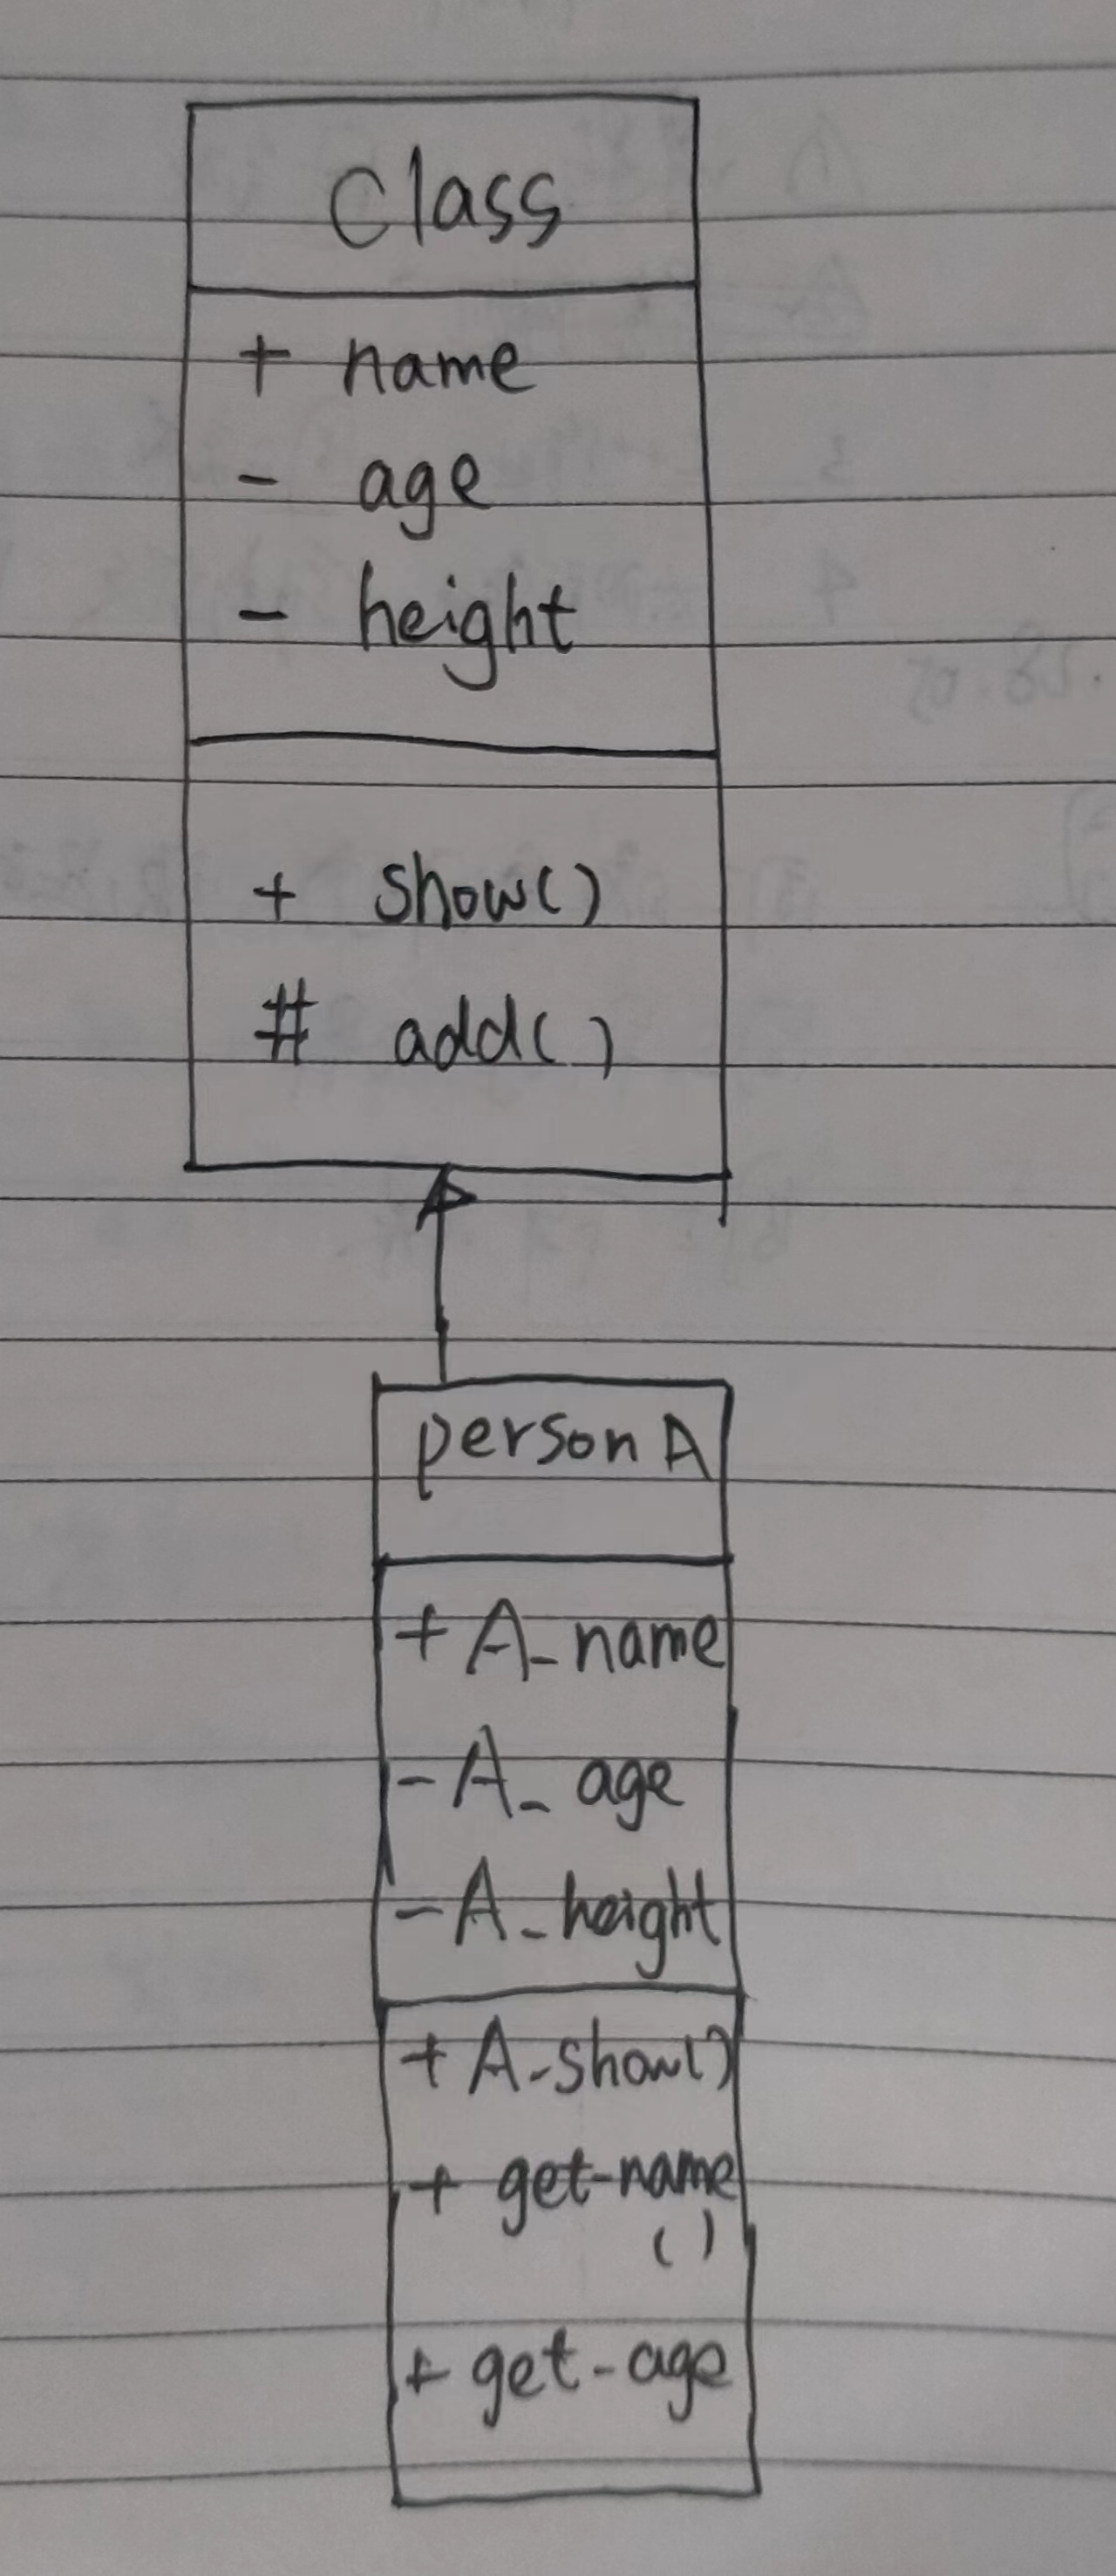 Class
+ name
- age
- height
+ show()
# add()
person A
+ A_name
- A_age
- A_height
+ A_show()
+ get_name
()
+ get_age